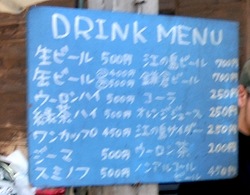 DRINK MENU
生ビール 500円
缶ビール 大500円
ウーロンハイ 500円
緑茶ハイ 500円
ワンカップ 450円
ジーマ 500円
スミノフ 500円
江の島ビール 700円
鎌倉ビール 700円
コーラ 250円
オレンジジュース 250円
江の島サイダー 250円
ウーロン茶 200円
ノンアルコール 450円